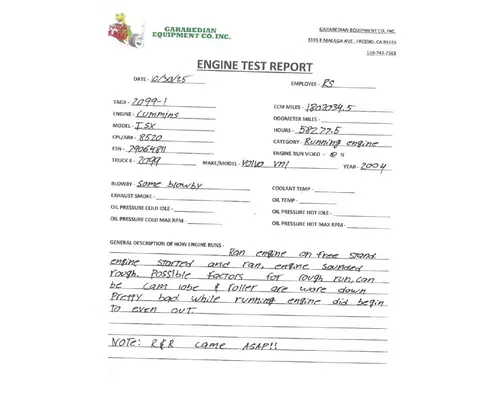 GARABEDIAN
EQUIPMENT CO. INC.
GARABEDIAN EQUIPMENT CO, INC.
3355 E MALAGA AVE, FRESNO, CA 93725
ENGINE TEST REPORT
DATE - 10/30/25
EMPLOYEE - RS
TAG# - 2099-1
ENGINE - Cummins
MODEL - ISX
CPL/AR# - 8520
ESN - 79064811
TRUCK # - 2099
MAKE/MODEL - Volvo vnl
YEAR - 2004
ECM MILES - 1802034.5
ODOMETER MILES -
HOURS - 58277.5
CATEGORY - Running engine
ENGINE RUN VIDEO - Y N
BLOWBY - Some blowby
EXHAUST SMOKE -
OIL PRESSURE COLD IDLE -
OIL PRESSURE COLD MAX RPM -
COOLANT TEMP -
OIL TEMP -
OIL PRESSURE HOT IDLE -
OIL PRESSURE HOT MAX RPM -
GENERAL DESCRIPTION OF HOW ENGINE RUNS -
Ran engine on free stand
engine started and ran, engine sounded
rough. Possible factors for rough run, can
be cam lobe & roller are wore down
Pretty bad while running engine did begin
to even out.
NOTE: R&R came ASAP!!